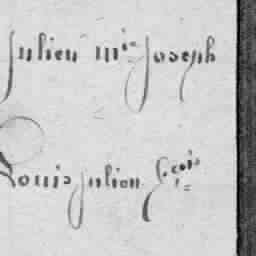 Julien mie Joseph
Louis Julien fcois